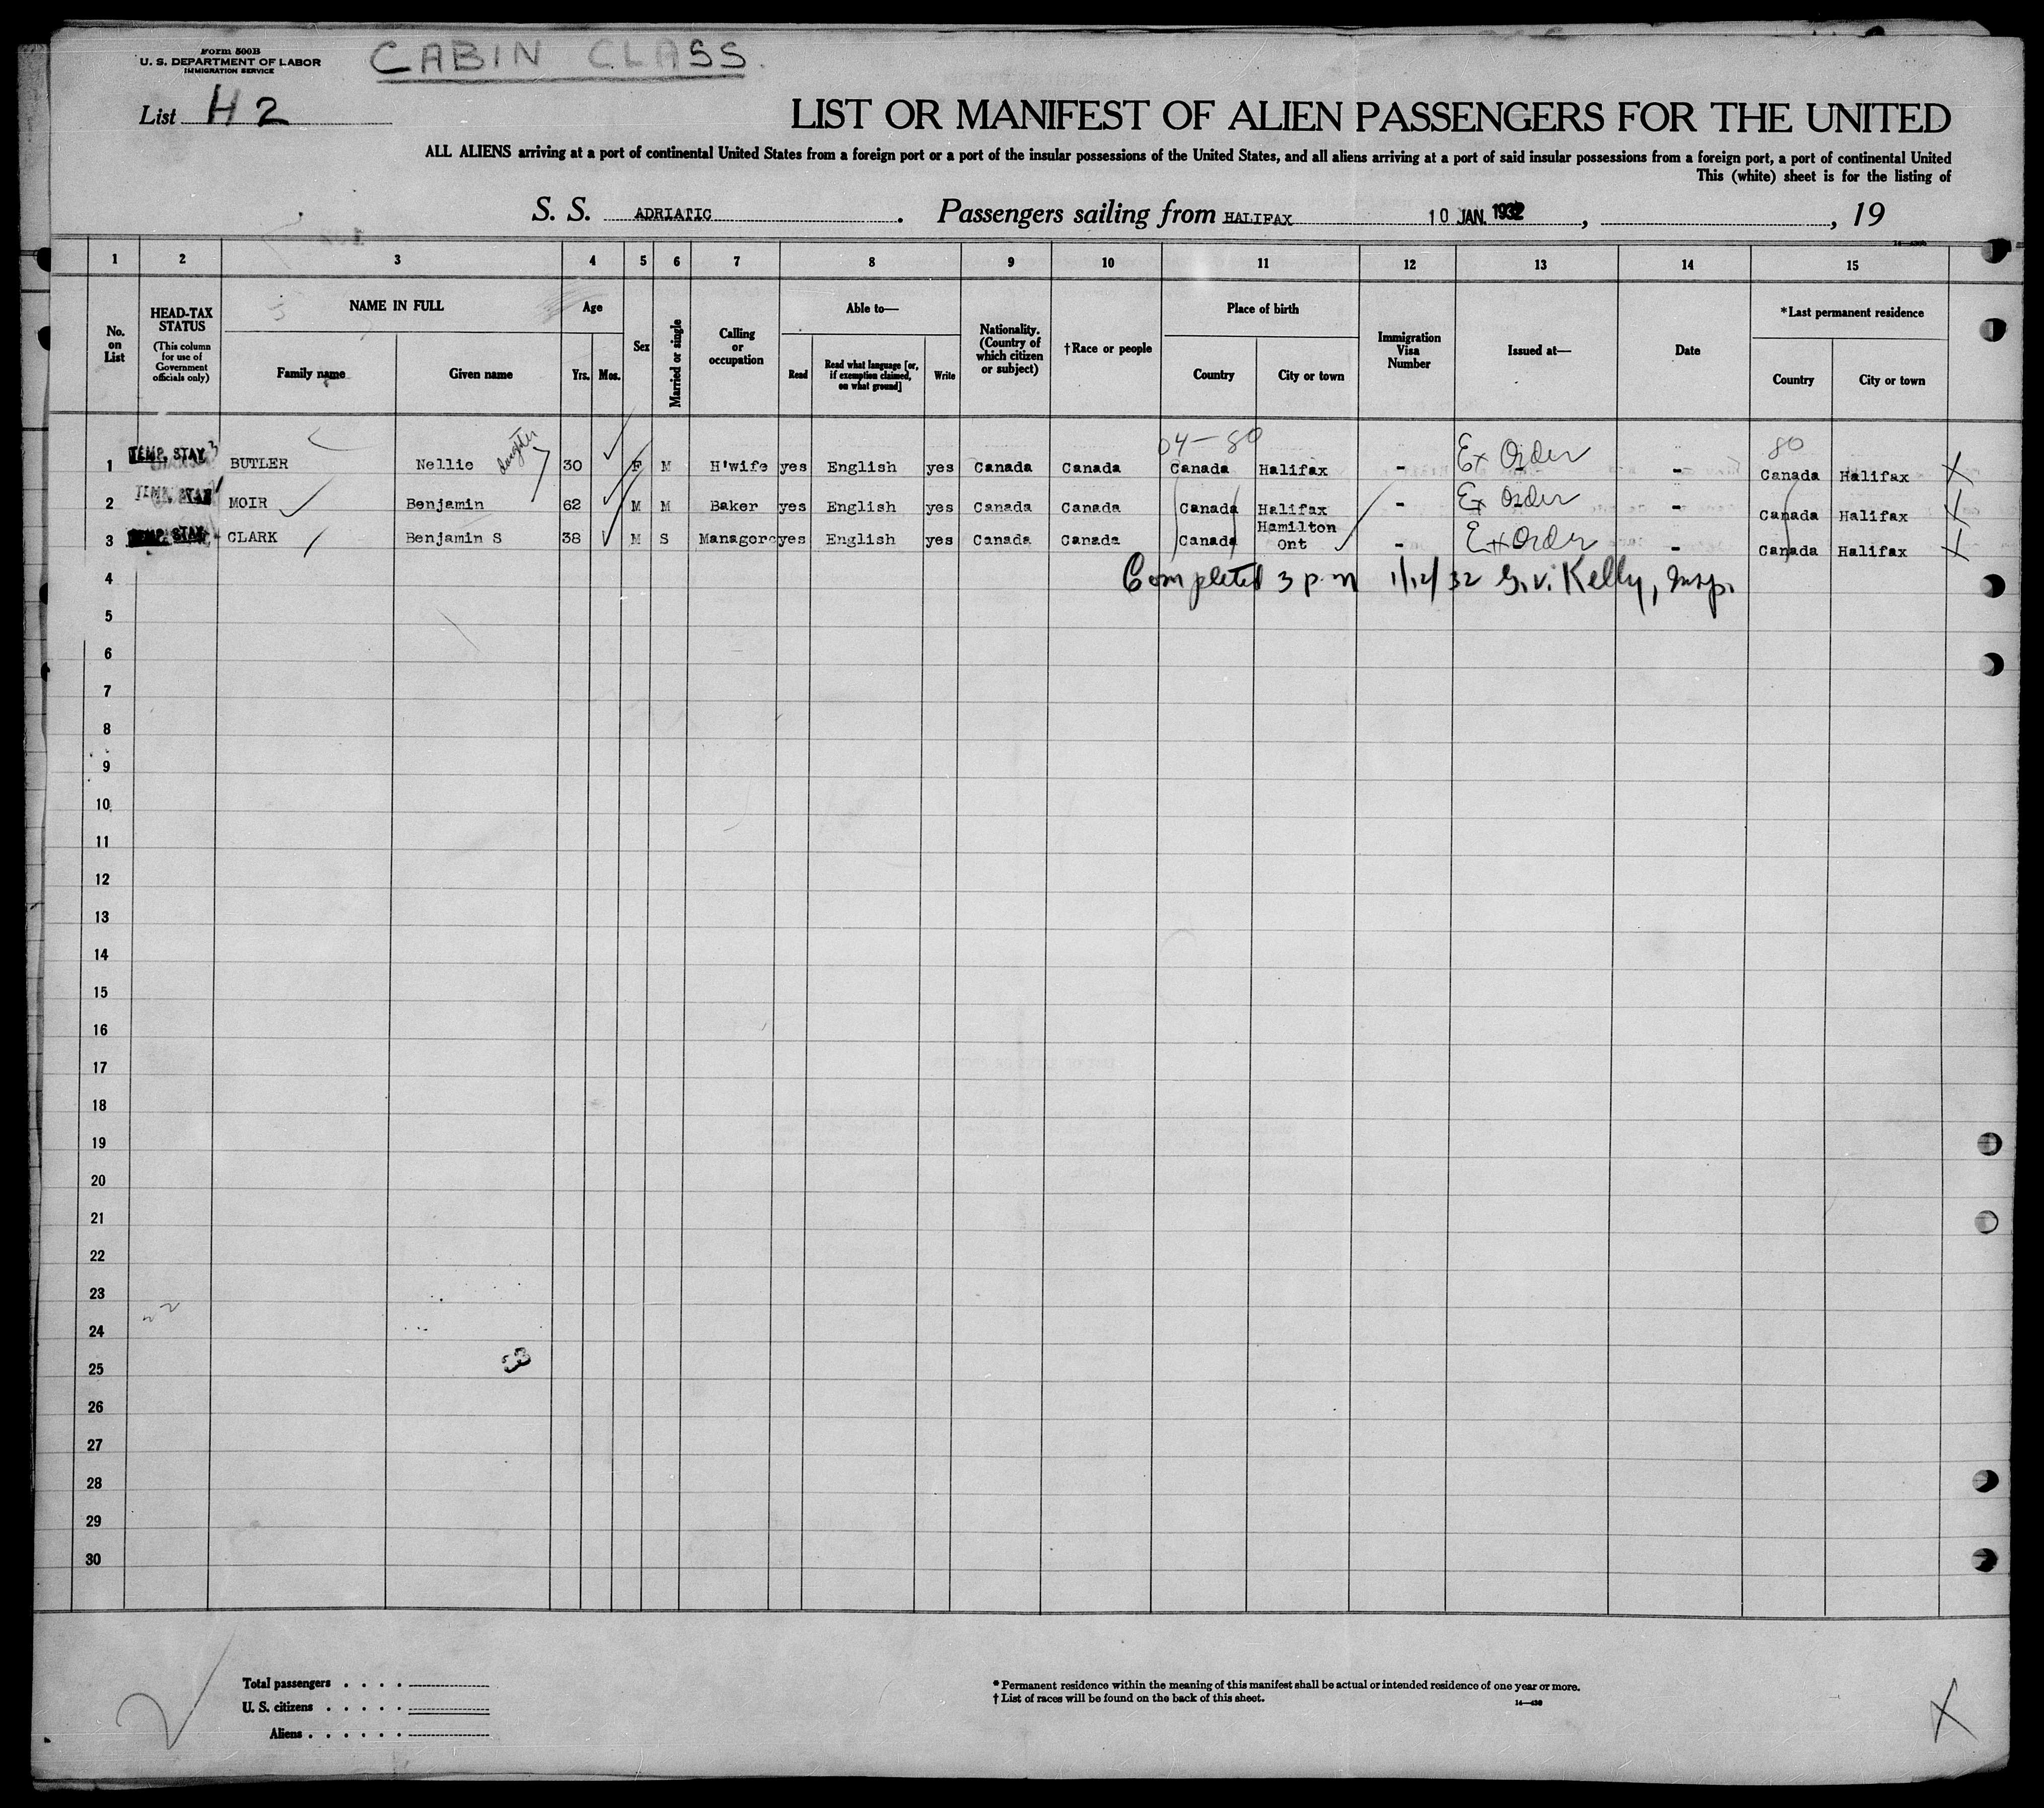 Form 500B
U. S. DEPARTMENT OF LABOR
IMMIGRATION SERVICE
CABIN CLASS.
List H 2
LIST OR MANIFEST OF ALIEN PASSENGERS FOR THE UNITED
ALL ALIENS arriving at a port of continental United States from a foreign port or a port of the insular possessions of the United States, and all aliens arriving at a port of said insular possessions from a foreign port, a port of continental United
This (white) sheet is for the listing of
S. S. ADRIATIC. Passengers sailing from HALIFAX 10 JAN. 1932, , 19
1 2 3 4 5 6 7 8 9 10 11 12 13 14 15
No. on List
HEAD-TAX STATUS (This column for use of Government officials only)
NAME IN FULL
Family name
Given name
Age
Yrs.
Mos.
Sex
Married or single
Calling or occupation
Able to—
Read
Read what language [or, if exemption claimed, on what ground]
Write
Nationality. (Country of which citizen or subject)
†Race or people
Place of birth
Country
City or town
Immigration Visa Number
Issued at—
Date
*Last permanent residence
Country
City or town
04-80 80
1 TEMP. STAY BUTLER Nellie daughter 30 F M H'wife yes English yes Canada Canada Canada Halifax - Ex Order - Canada Halifax X
2 TEMP. STAY MOIR Benjamin 62 M M Baker yes English yes Canada Canada Canada Halifax - Ex Order - Canada Halifax X
3 TEMP. STAY CLARK Benjamin S 38 M S Manager yes English yes Canada Canada Canada Hamilton Ont - Ex Order - Canada Halifax X
Completed 3 p.m 1/12/32 G.V. Kelly, Insp.
4
5
6
7
8
9
10
11
12
13
14
15
16
17
18
19
20
21
22
23
24
25
26
27
28
29
30
Total passengers . . . .
U. S. citizens . . . . .
Aliens . . . . . .
* Permanent residence within the meaning of this manifest shall be actual or intended residence of one year or more.
† List of races will be found on the back of this sheet.
14—430
X